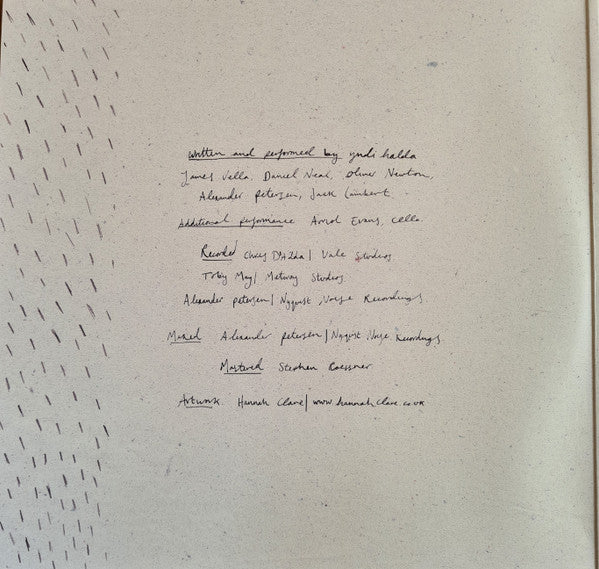 written and performed by yndi halda
James Vella, Daniel Neal, Oliver Newton,
Alexander Petersen, Jack Lambert.
Additional performance Arnol Evans, cello.
Recorded Chris D'Adda | Vale Studios
Toby May | Metway Studios
Alexander Petersen | Nyquist Noise Recordings.
Mixed Alexander Petersen | Nyquist Noise Recordings.
Mastered Stephen Roessner
Artwork Hannah Clare | www.hannahclare.co.uk